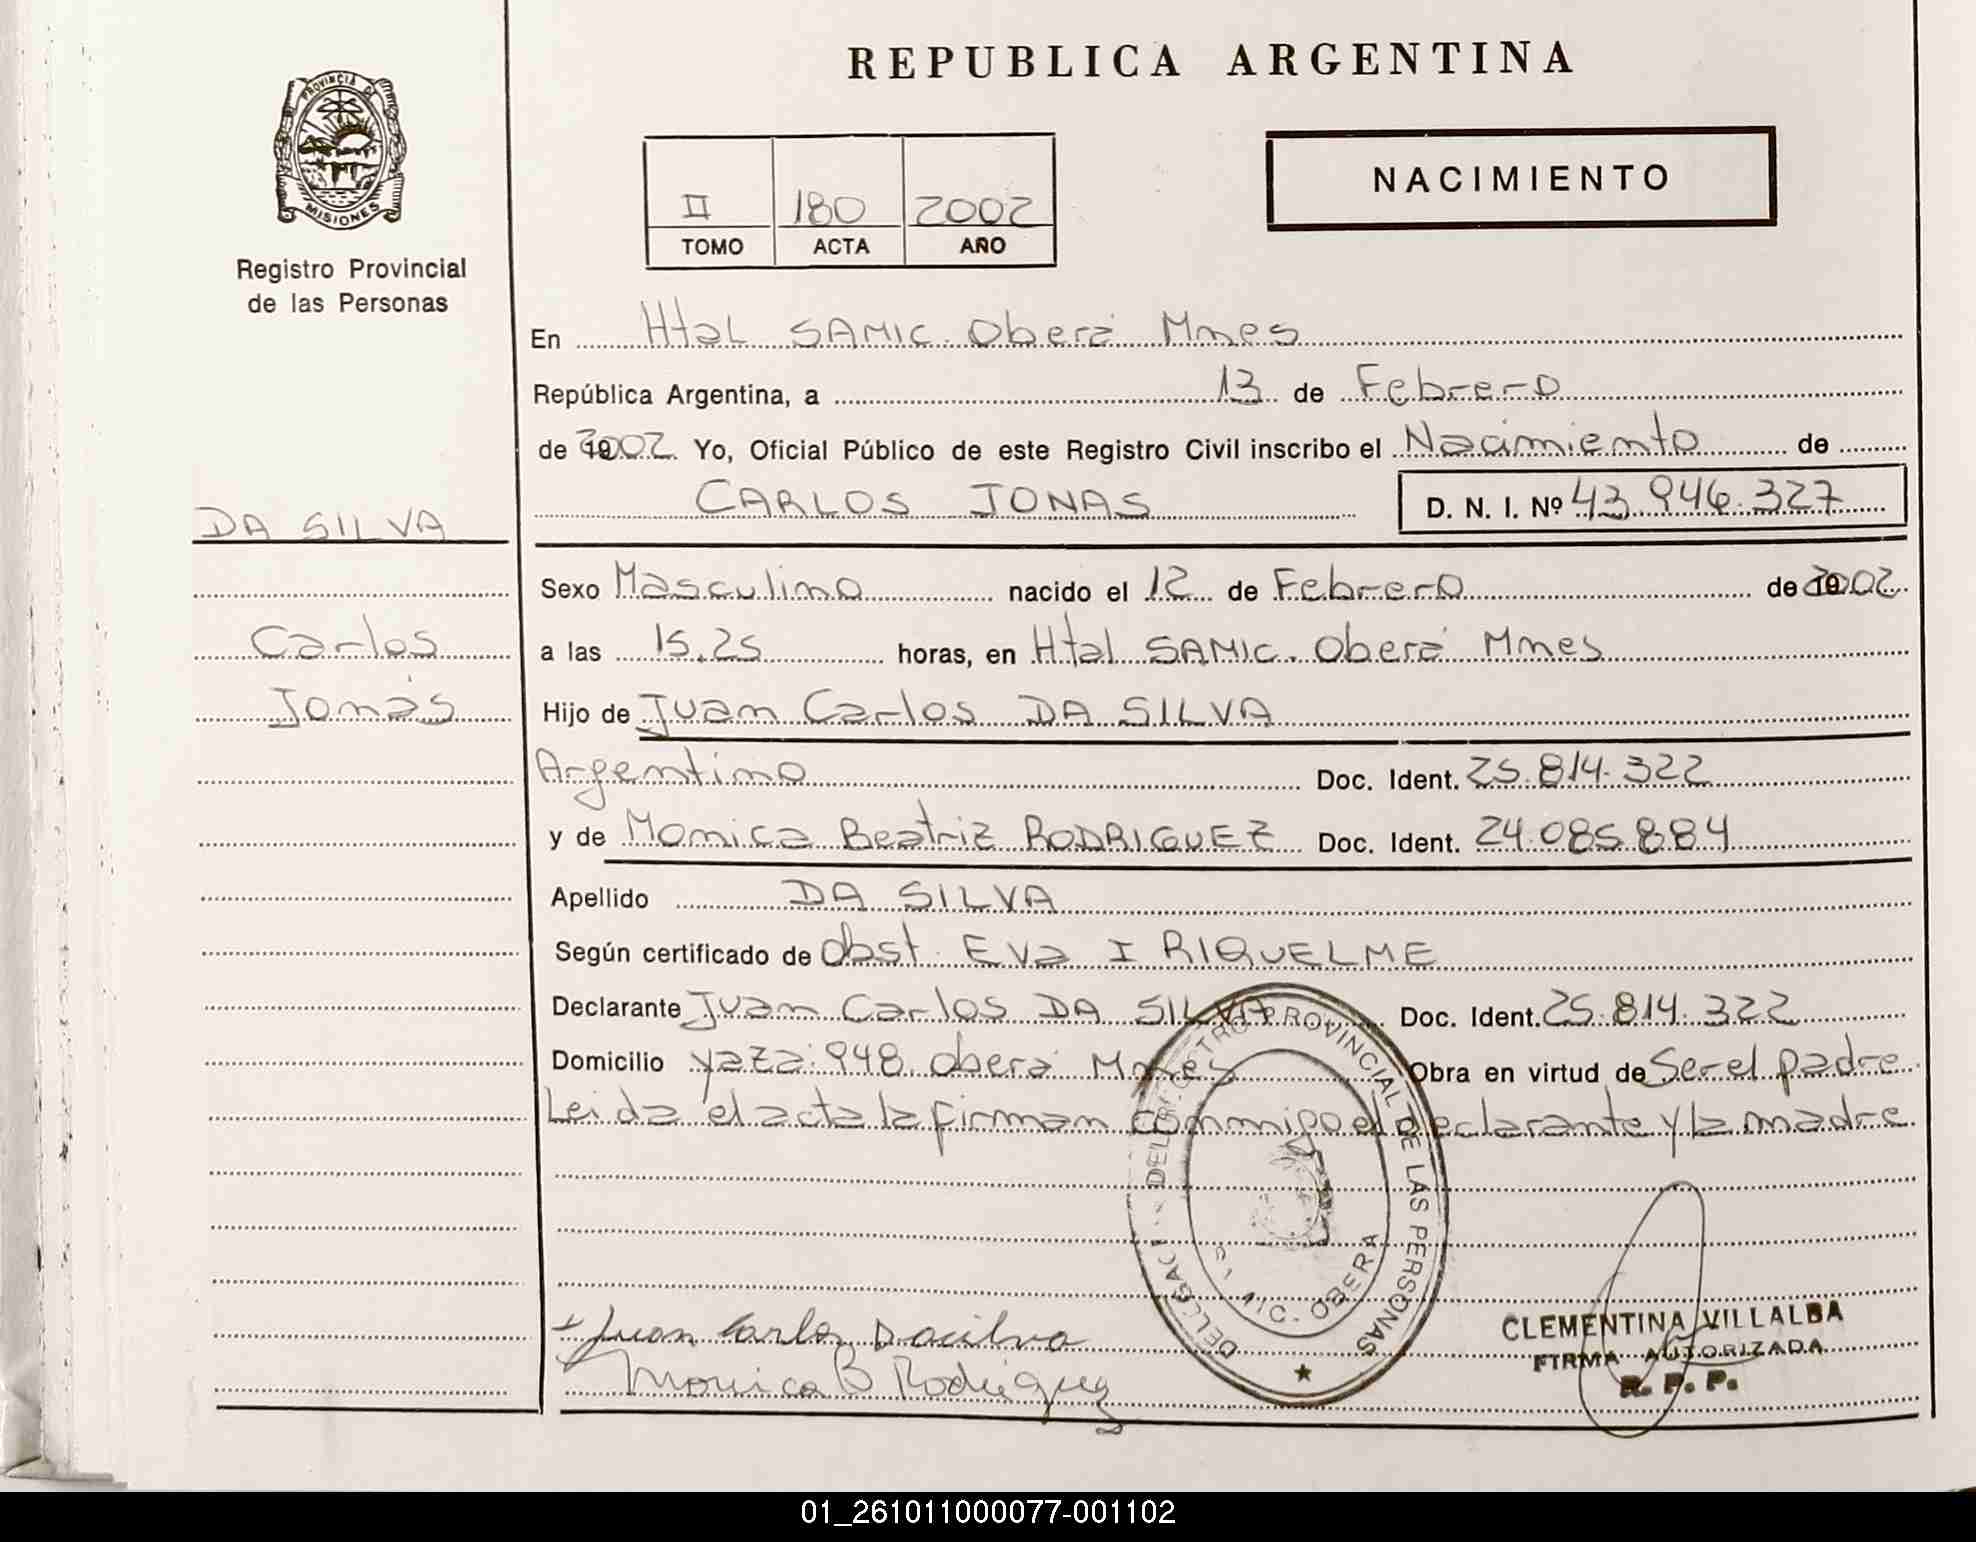 REPUBLICA ARGENTINA
PROVINCIA DE
MISIONES
Registro Provincial
de las Personas
II 180 2002
TOMO ACTA AÑO
NACIMIENTO
En Htal SAMIC. Oberá Mnes
República Argentina, a 13 de Febrero
de 2002. Yo, Oficial Público de este Registro Civil inscribo el Nacimiento de
CARLOS JONAS D. N. I. Nº 43.946.327
DA SILVA
Carlos
Jonás
Sexo Masculino nacido el 12 de Febrero de 2002
a las 15.25 horas, en Htal SAMIC. Oberá Mnes
Hijo de Juan Carlos DA SILVA
Argentino Doc. Ident. 25.814.322
y de Monica Beatriz RODRIGUEZ Doc. Ident. 24.085.884
Apellido DA SILVA
Según certificado de Obst. Eva I RIQUELME
Declarante Juan Carlos DA SILVA Doc. Ident. 25.814.322
Domicilio Yazá 948. Oberá Mnes Obra en virtud de Ser el padre
Leída el acta la firman conmigo el declarante y la madre
PROVINCIAL DE LAS PERSONAS
OBERA
Juan Carlos Dacilva
Monica B Rodriguez
CLEMENTINA VILLALBA
FIRMA AUTORIZADA
R. P. P.
01_261011000077-001102